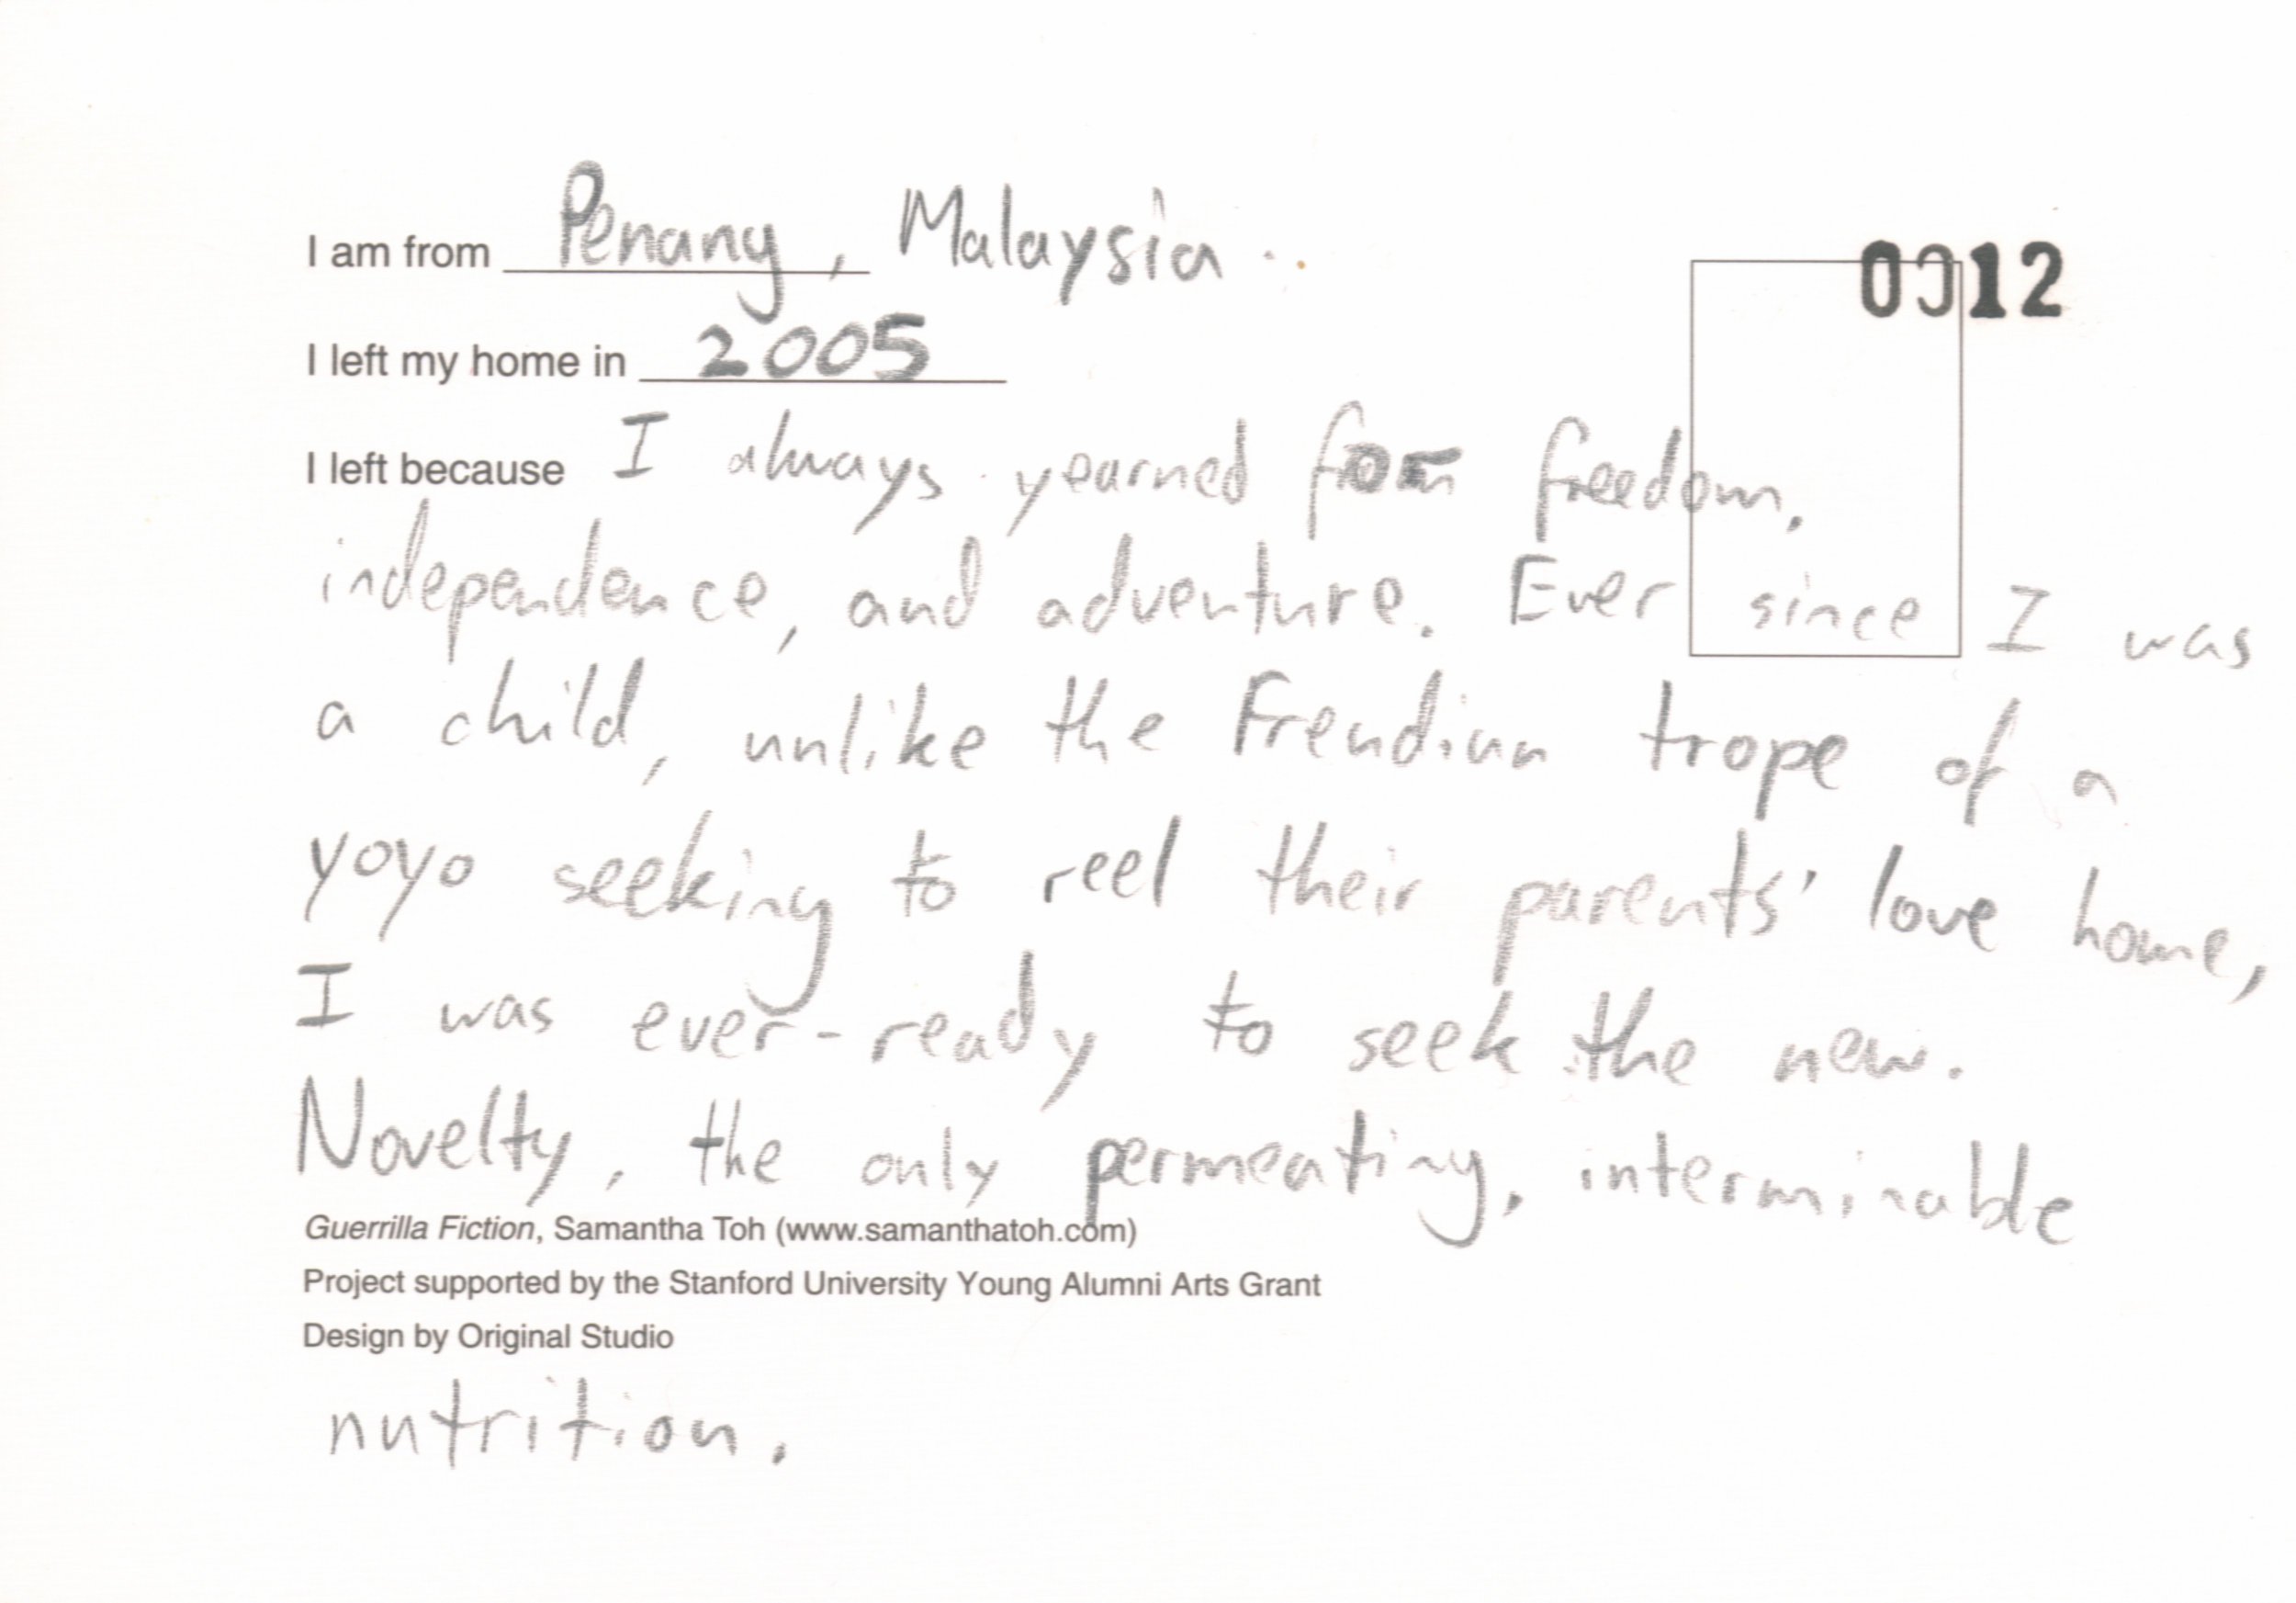 I am from Penang, Malaysia.
0012
I left my home in 2005
I left because I always yearned for freedom,
independence, and adventure. Ever since I was
a child, unlike the Freudian trope of a
yoyo seeking to reel their parents' love home,
I was ever-ready to seek the new.
Novelty, the only permeating, interminable
Guerrilla Fiction, Samantha Toh (www.samanthatoh.com)
Project supported by the Stanford University Young Alumni Arts Grant
Design by Original Studio
nutrition.